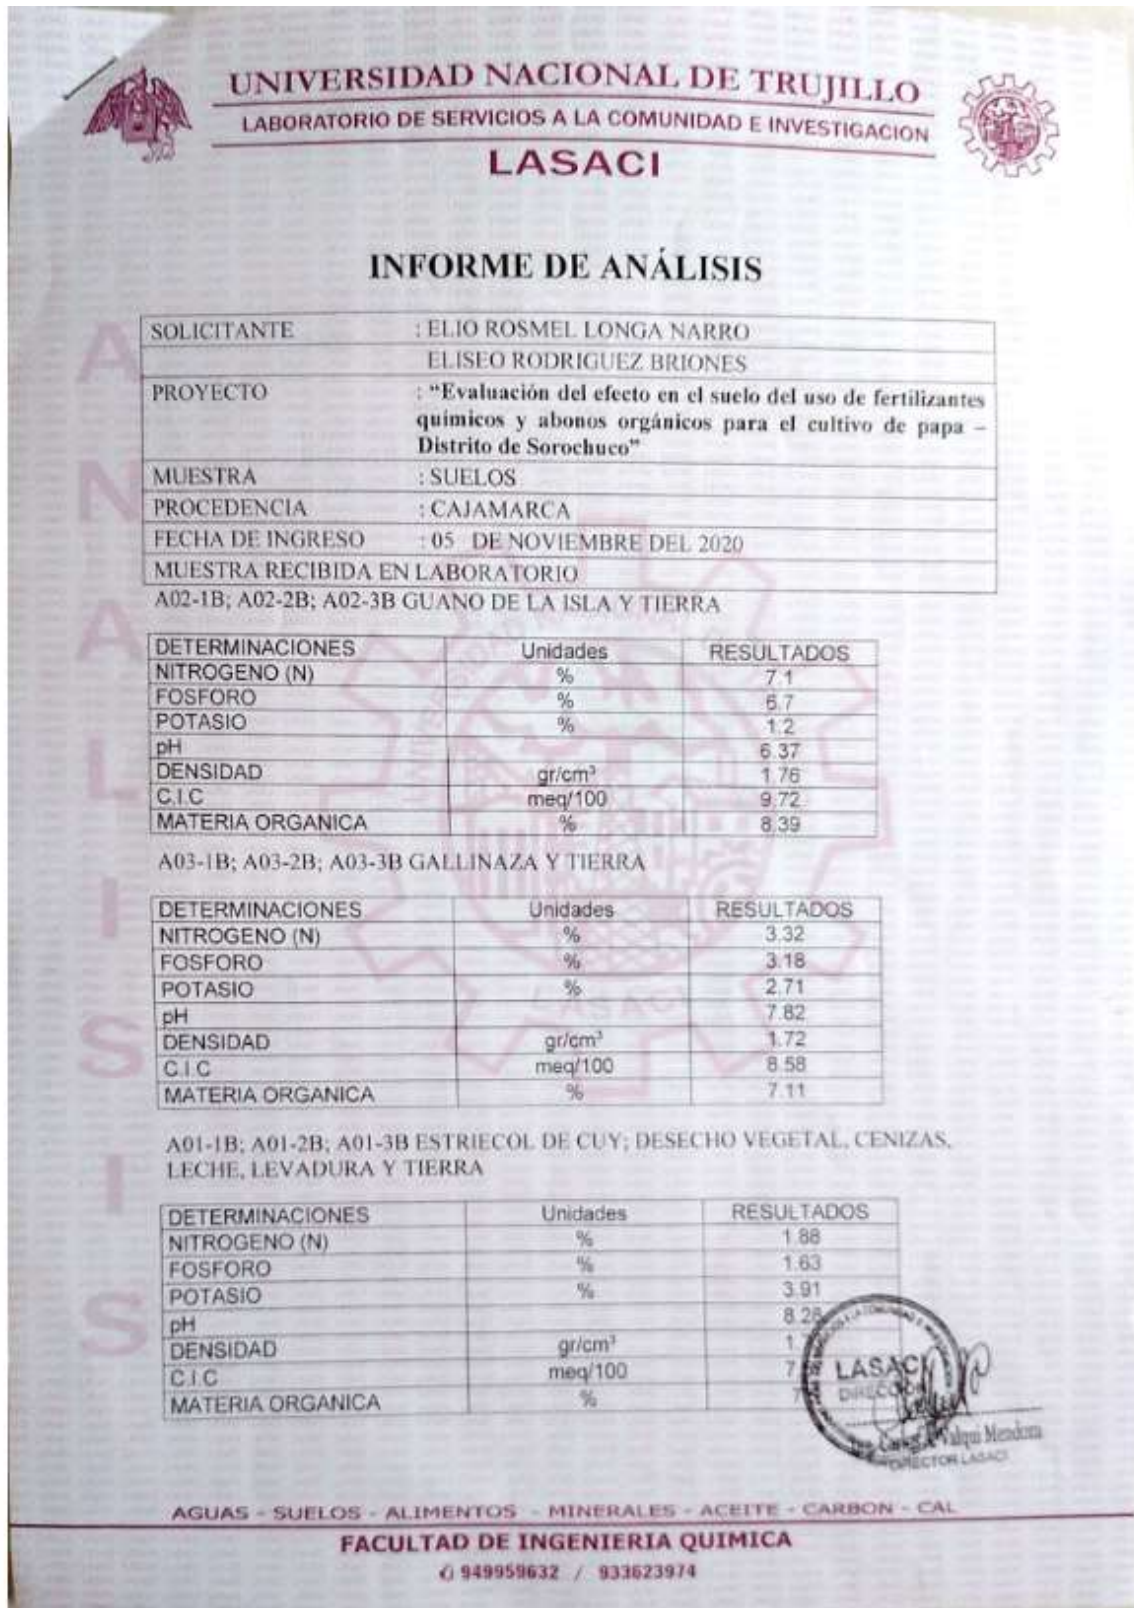 UNIVERSIDAD NACIONAL DE TRUJILLO
LABORATORIO DE SERVICIOS A LA COMUNIDAD E INVESTIGACION
LASACI
INFORME DE ANÁLISIS
SOLICITANTE : ELIO ROSMEL LONGA NARRO
ELISEO RODRIGUEZ BRIONES
PROYECTO : "Evaluación del efecto en el suelo del uso de fertilizantes
químicos y abonos orgánicos para el cultivo de papa –
Distrito de Sorochuco"
MUESTRA : SUELOS
PROCEDENCIA : CAJAMARCA
FECHA DE INGRESO : 05 DE NOVIEMBRE DEL 2020
MUESTRA RECIBIDA EN LABORATORIO
A02-1B; A02-2B; A02-3B GUANO DE LA ISLA Y TIERRA
DETERMINACIONES Unidades RESULTADOS
NITROGENO (N) % 7.1
FOSFORO % 6.7
POTASIO % 1.2
pH 6.37
DENSIDAD gr/cm³ 1.76
C.I.C meq/100 9.72
MATERIA ORGANICA % 8.39
A03-1B; A03-2B; A03-3B GALLINAZA Y TIERRA
DETERMINACIONES Unidades RESULTADOS
NITROGENO (N) % 3.32
FOSFORO % 3.18
POTASIO % 2.71
pH 7.82
DENSIDAD gr/cm³ 1.72
C.I.C meq/100 8.58
MATERIA ORGANICA % 7.11
A01-1B; A01-2B; A01-3B ESTRIECOL DE CUY; DESECHO VEGETAL, CENIZAS,
LECHE, LEVADURA Y TIERRA
DETERMINACIONES Unidades RESULTADOS
NITROGENO (N) % 1.88
FOSFORO % 1.63
POTASIO % 3.91
pH 8.28
DENSIDAD gr/cm³ 1
C.I.C meq/100 7
MATERIA ORGANICA % 7
LASACI
Valqui Mendoza
DIRECTOR LASACI
AGUAS - SUELOS - ALIMENTOS - MINERALES - ACEITE - CARBON - CAL
FACULTAD DE INGENIERIA QUIMICA
949959632 / 933623974
ANALISIS
LASACI